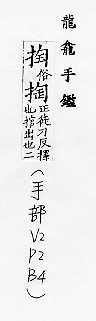 龍龕手鑑
掏俗掏正徒刀反擇
也掐出也二
(手部
V2
P2
B4)